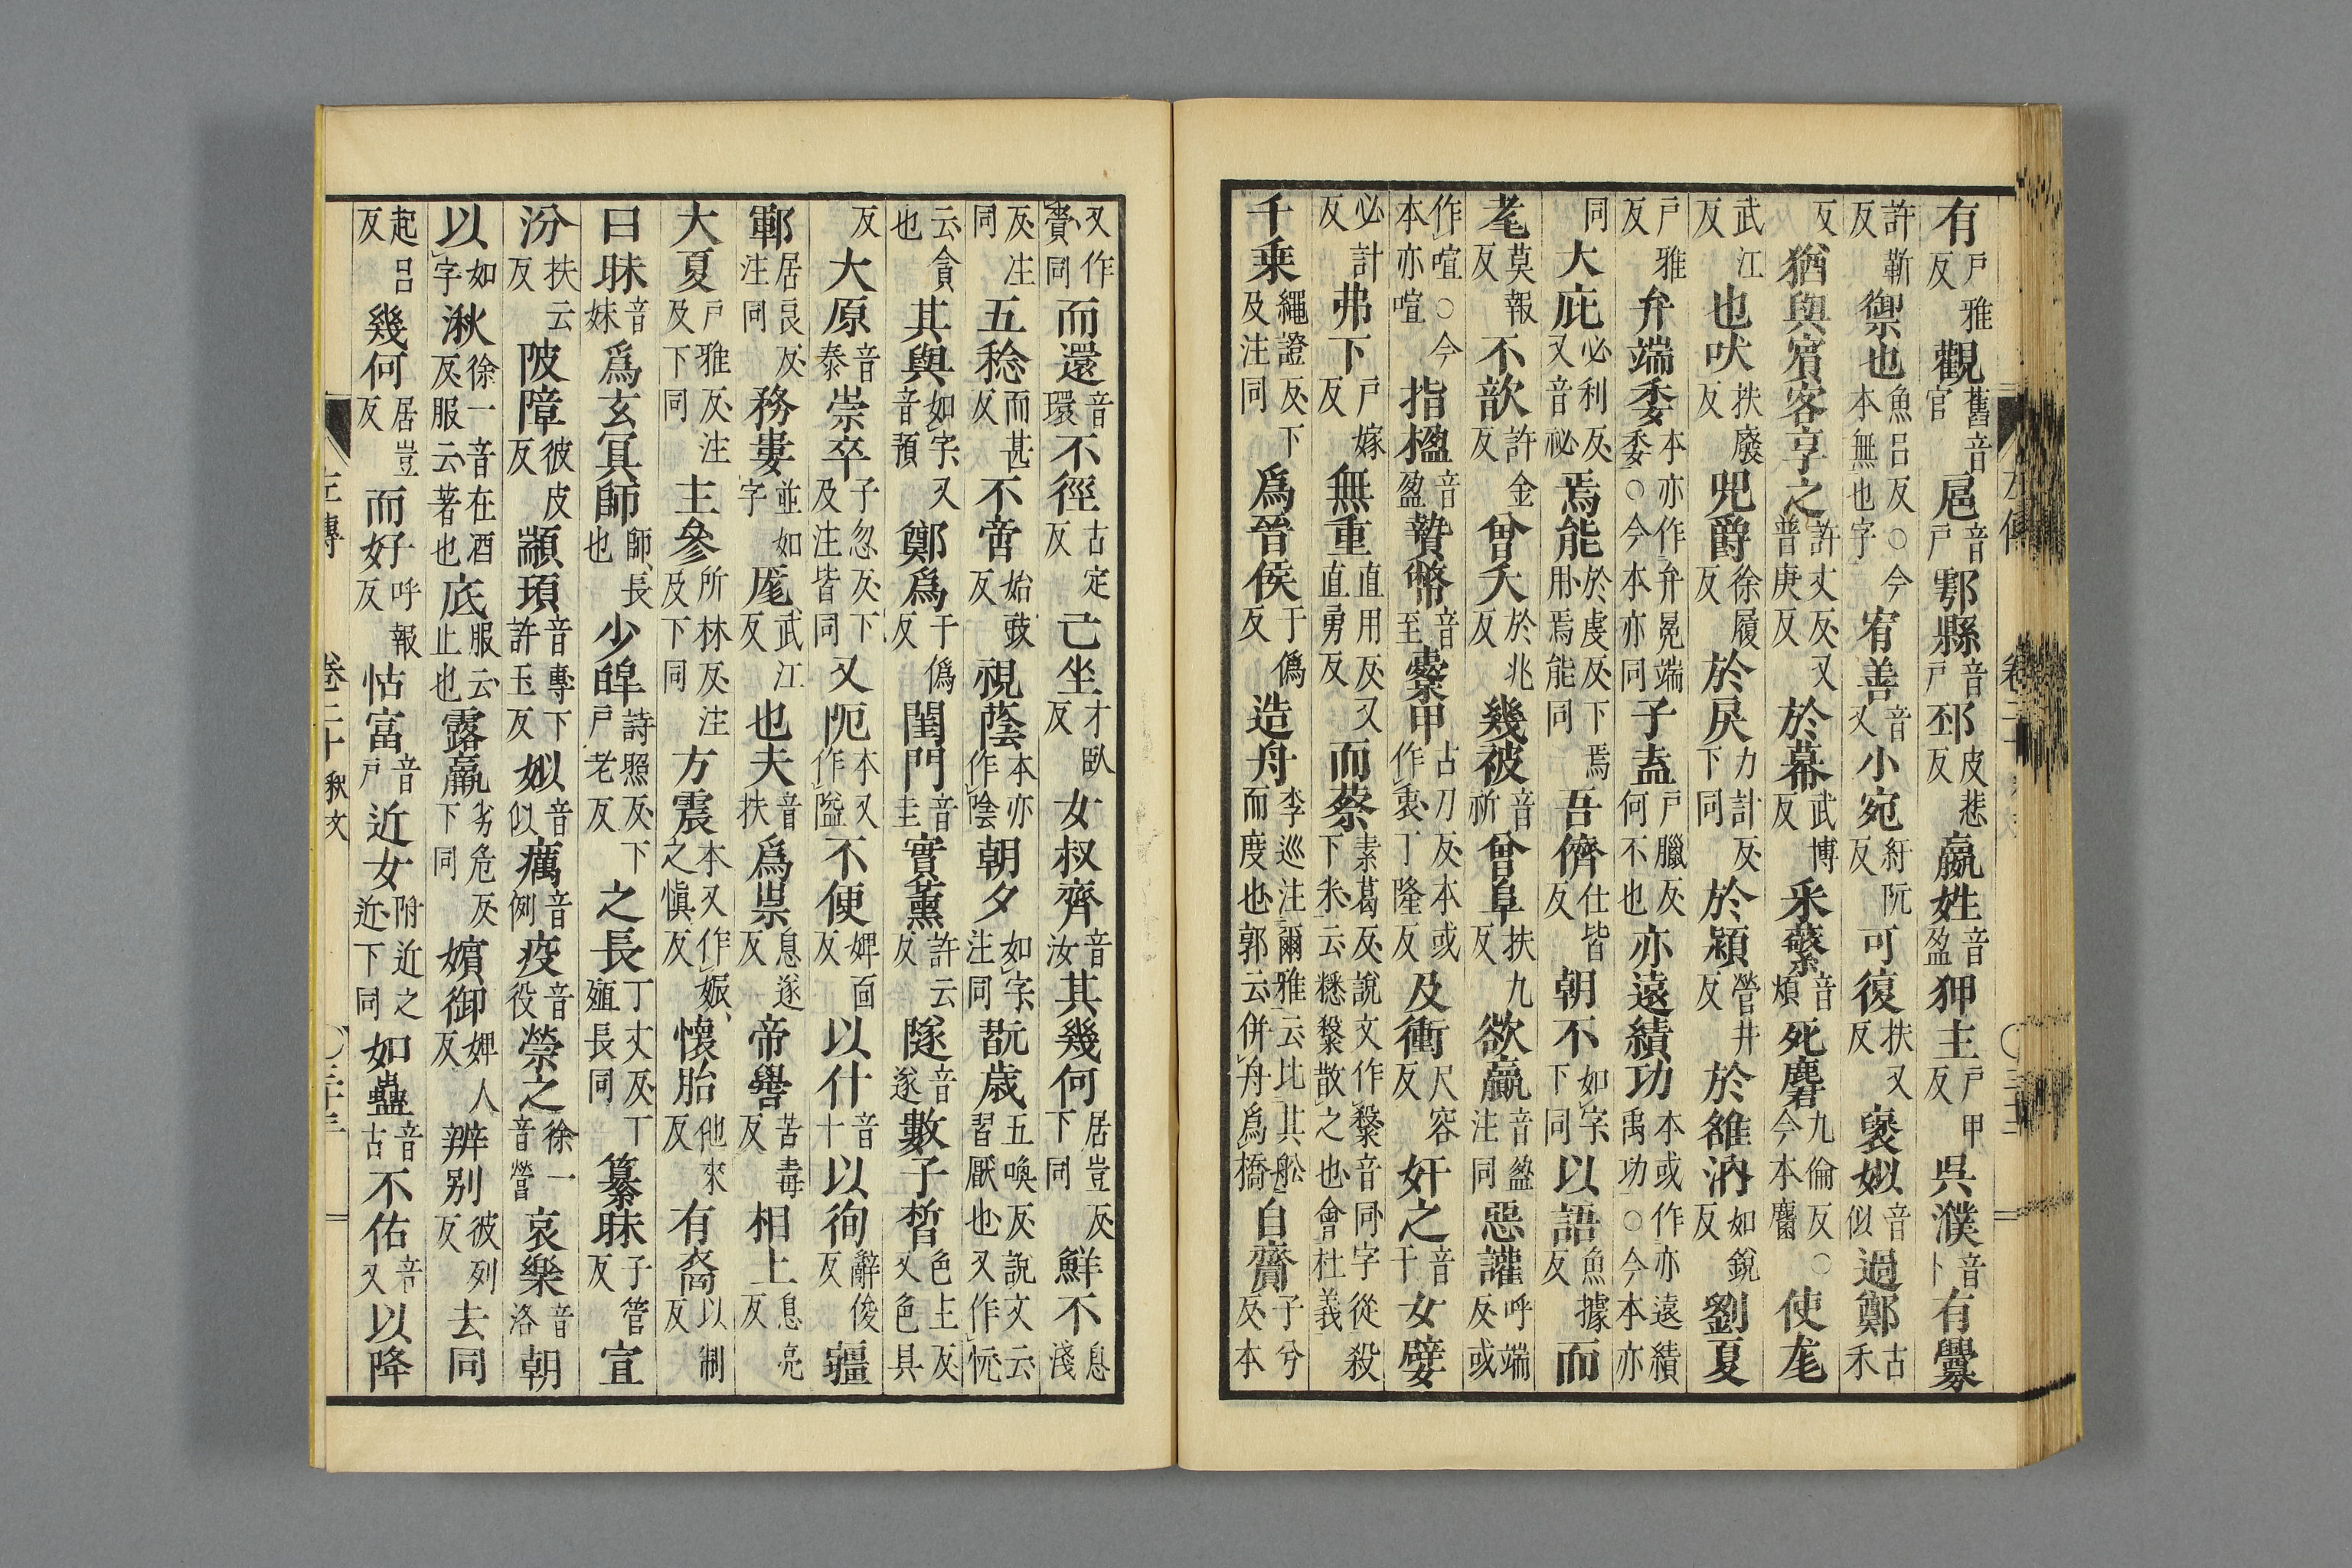 有戶雅反觀舊音官扈音戶鄠縣音戶邳皮悲反嬴姓音盈狎主戶甲反吳濮音卜有釁
許靳反禦也魚呂反○今本無也字宥善音又小宛紆阮反可復扶又反褒姒音似過鄭古禾
反猶與賓客享之許丈反又普庚反於幕武博反采蘩音煩死麕九倫反○今本麕使尨
武江反也吠扶廢反兕爵徐履反於戾力計反下同於潁營井反於雒汭如銳反劉夏
戶雅反弁端委本亦作弁冕端委○今本亦同子盍戶臘反何不也亦遠績功本或作亦遠績禹功○今本亦
同大庇必利反又音祕焉能於虔反下焉用焉能同吾儕仕皆反朝不如字下同以語魚據反而
耄莫報反不歆許金反曾夭於兆反幾被音祈曾阜扶九反欲贏音盈注同惡讙呼端反或
作喧○今本亦喧指楹音盈贄幣音至櫜甲古刀反本或作衷丁隆反及衝尺容反奸之音干女嬖
必計反弗下戶嫁反無重直用反又直勇反而蔡素葛反說文作𥻦音同字從殺下米云𥻦𥻦散之也會杜義
千乗繩證反下及注同爲晉侯于偽反造舟李巡注爾雅云比其舩而度也郭云併舟爲橋自齎子兮反本
又作賫同而還音環不徑古定反己坐才臥反女叔齊音汝其幾何居豈反下同鮮不息淺
反注同五稔而甚反不啻始豉反視蔭本亦作陰朝夕如字注同翫歳五喚反說文云習厭也又作忨
云貪也其與如字又音預鄭爲于偽反閨門音圭實薰許云反隧音遂數子晳色上反又色具
反大原音泰崇卒子忽反下及注皆同又阨本又作隘不便婢面反以什音十以徇辭俊反疆
鄆居良反注同務婁並如字厖武江反也夫音扶爲祟息遂反帝嚳苦毒反相上息亮反
大夏戶雅反注及下同主參所林反注及下同方震本又作娠之慎反懷胎他來反有裔以制反
曰昧音妹爲玄冥師師長也少皥詩照反下戶老反之長丁丈反長同纂昧子管反宣
汾扶云反陂障彼皮反顓頊音專下許玉反姒音似癘音例疫音役禜之徐一音營哀樂音洛朝
以如字湫徐一音在酒反服云著也底服云止也露羸劣危反下同嬪御婢人反辨别彼列反去同
起呂反幾何居豈反而好呼報反怙富音戶近女附近之近下同如蠱音古不佑音又以降
左傳 卷二十 釋文